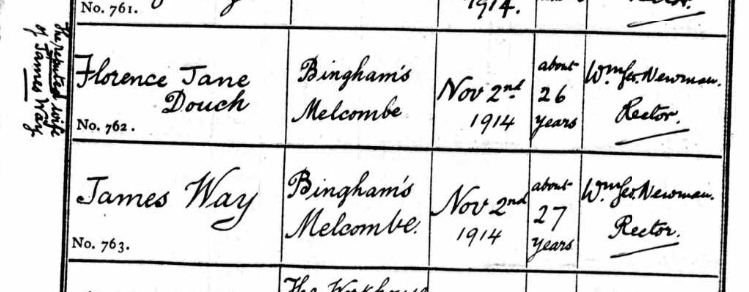 No. 761.
1914.
Rector.
the reputed wife
of James Way
Florence Jane
Douch
No. 762.
Bingham's
Melcombe
Nov 2nd
1914
about
26
years
Wm Geo. Newman.
Rector.
James Way
No. 763.
Bingham's
Melcombe.
Nov 2nd
1914
about
27
years
Wm Geo. Newman.
Rector.
The Workhouse